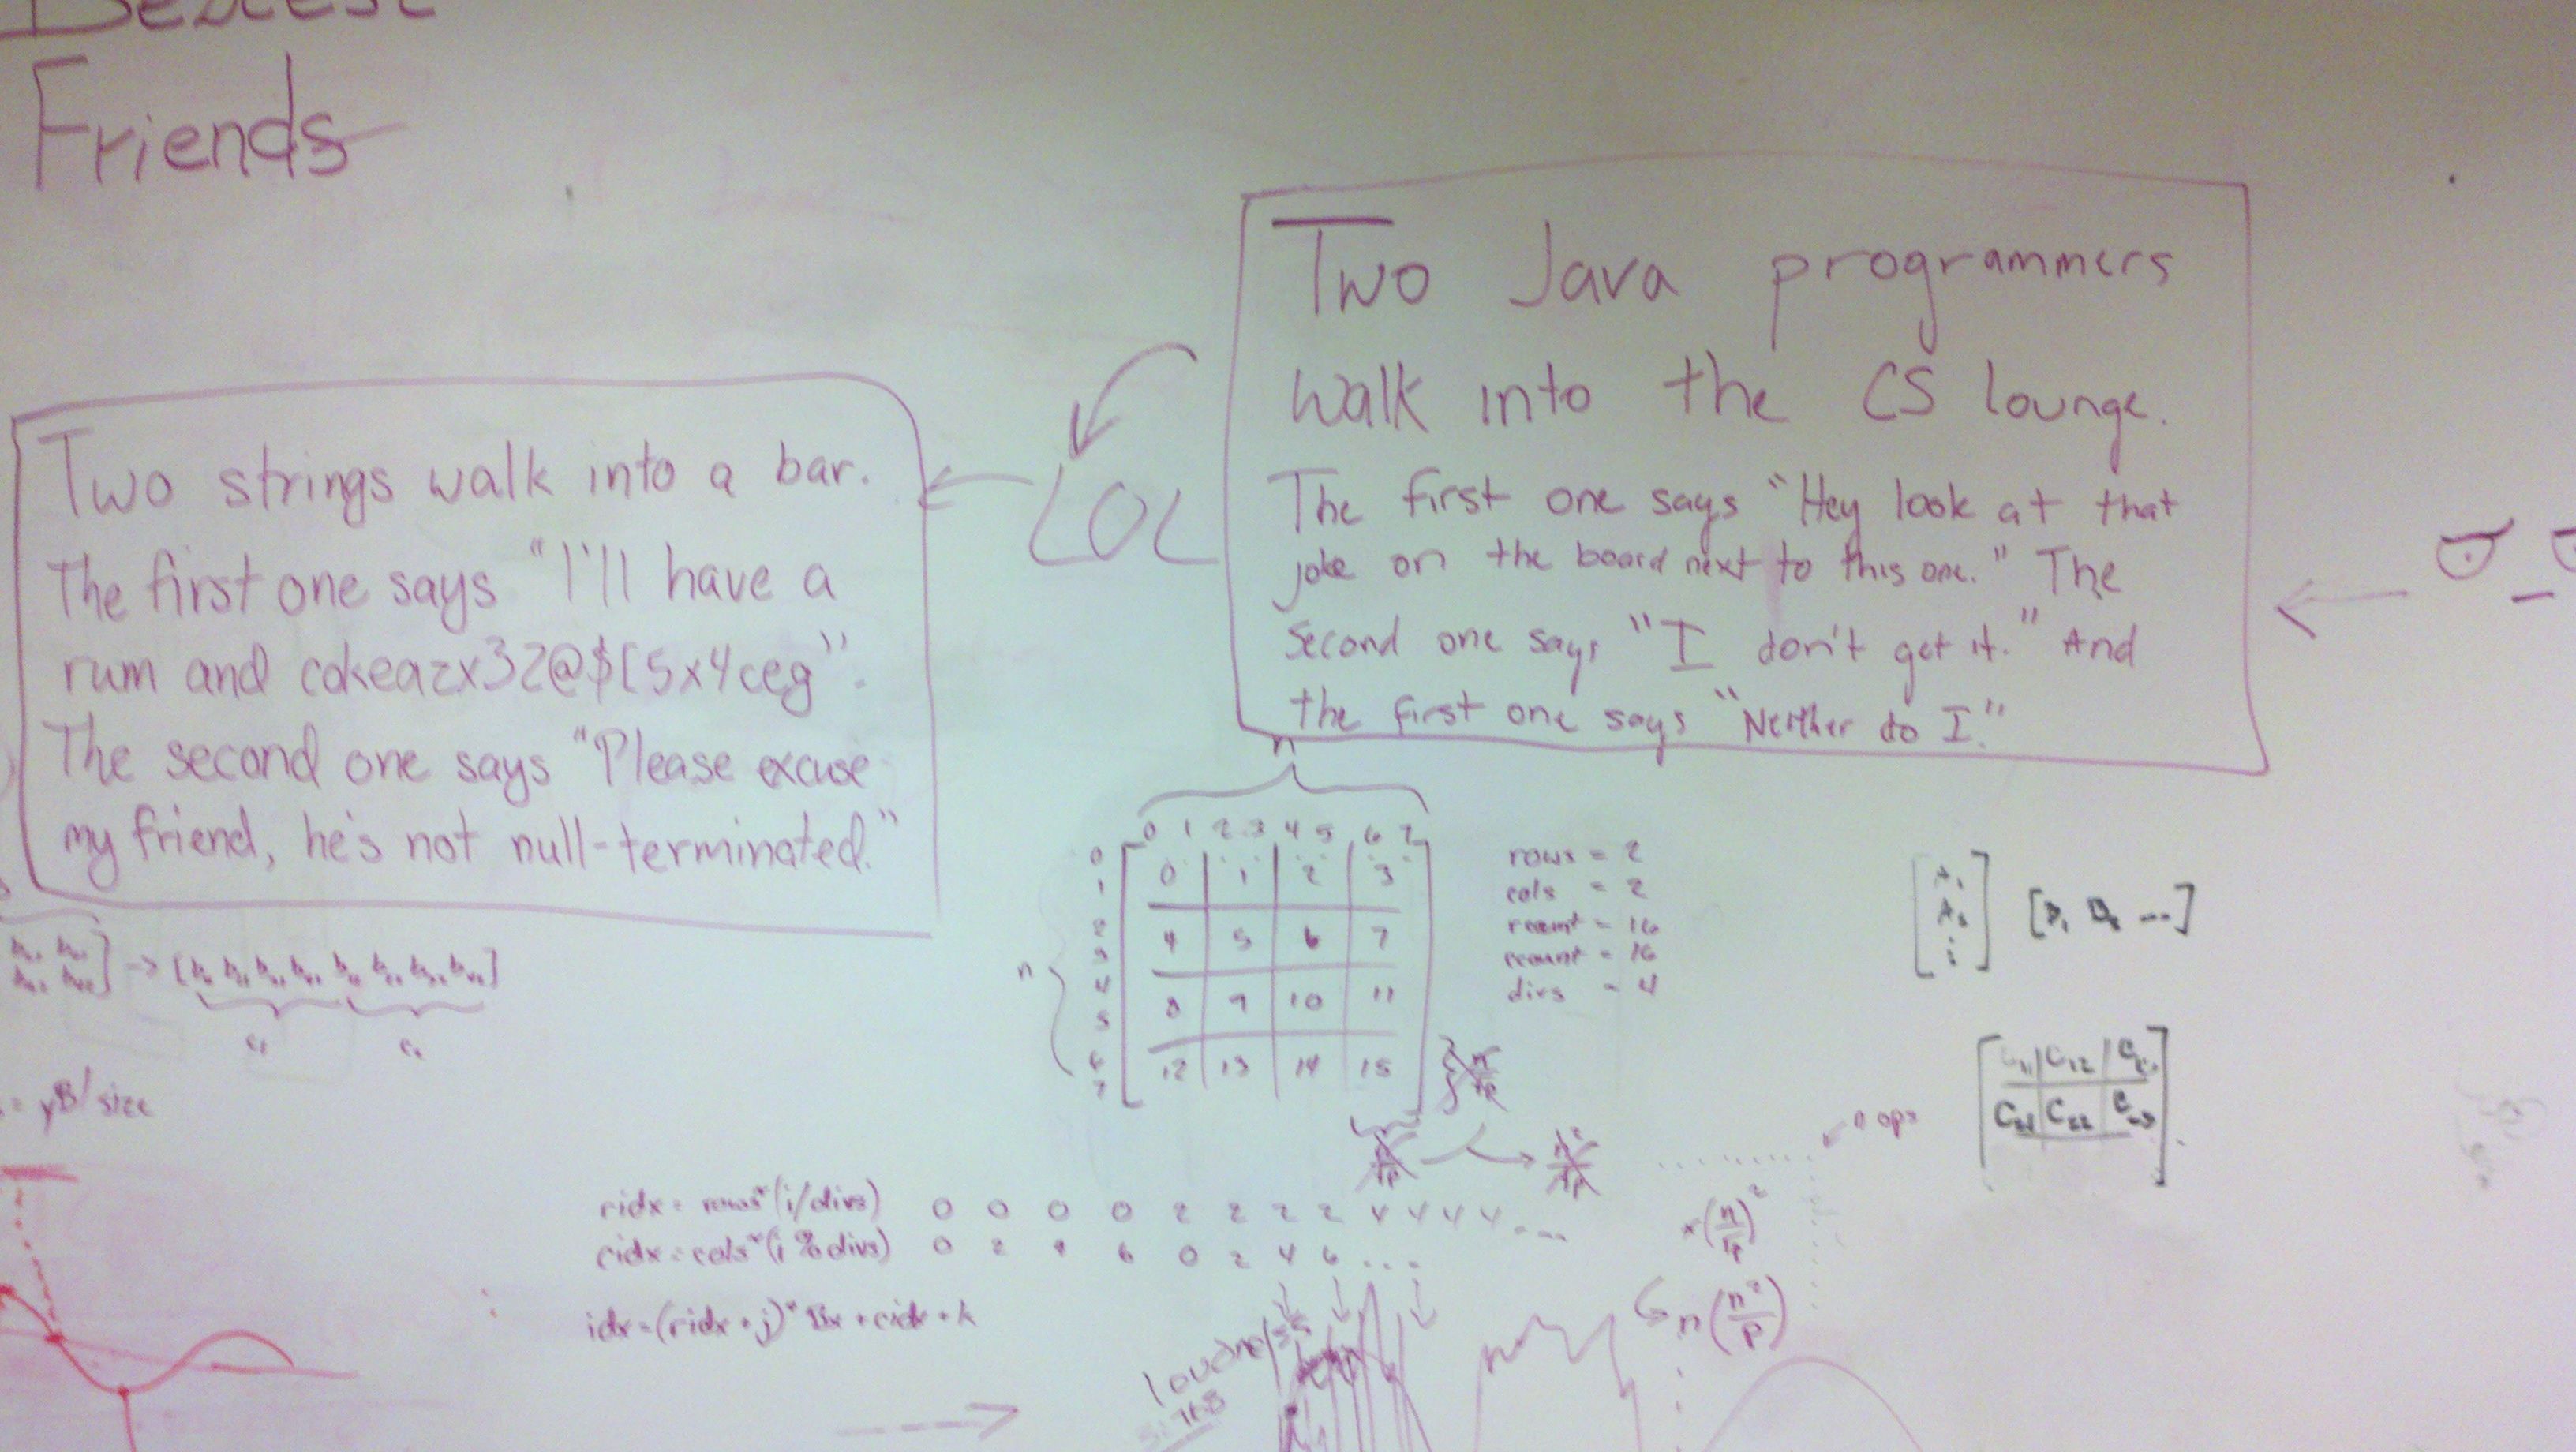 Friends
Two Java programmers
walk into the CS lounge.
The first one says "Hey look at that
joke on the board next to this one." The
second one says "I don't get it." And
the first one says "Neither do I."
LOL
Two strings walk into a bar.
The first one says "I'll have a
rum and cokeazx32@$[5x4ceg".
The second one says "Please excuse
my friend, he's not null-terminated."
n
0 1 2 3 4 5 6 7
0 1 2 3
4 5 6 7
8 9 10 11
12 13 14 15
n
0
1
2
3
4
5
6
7
rows = 2
cols = 2
rcount = 16
ccount = 16
divs = 4
= yB/size
n ops
C11 C12
C21 C22
ridx = rows*(i/divs) 0 0 0 0 2 2 2 2 4 4 4 4 ...
cidx = cols*(i%divs) 0 2 4 6 0 2 4 6 ...
idx=(ridx+j)*Bx+cidx+k
n(n²/p)
loudness